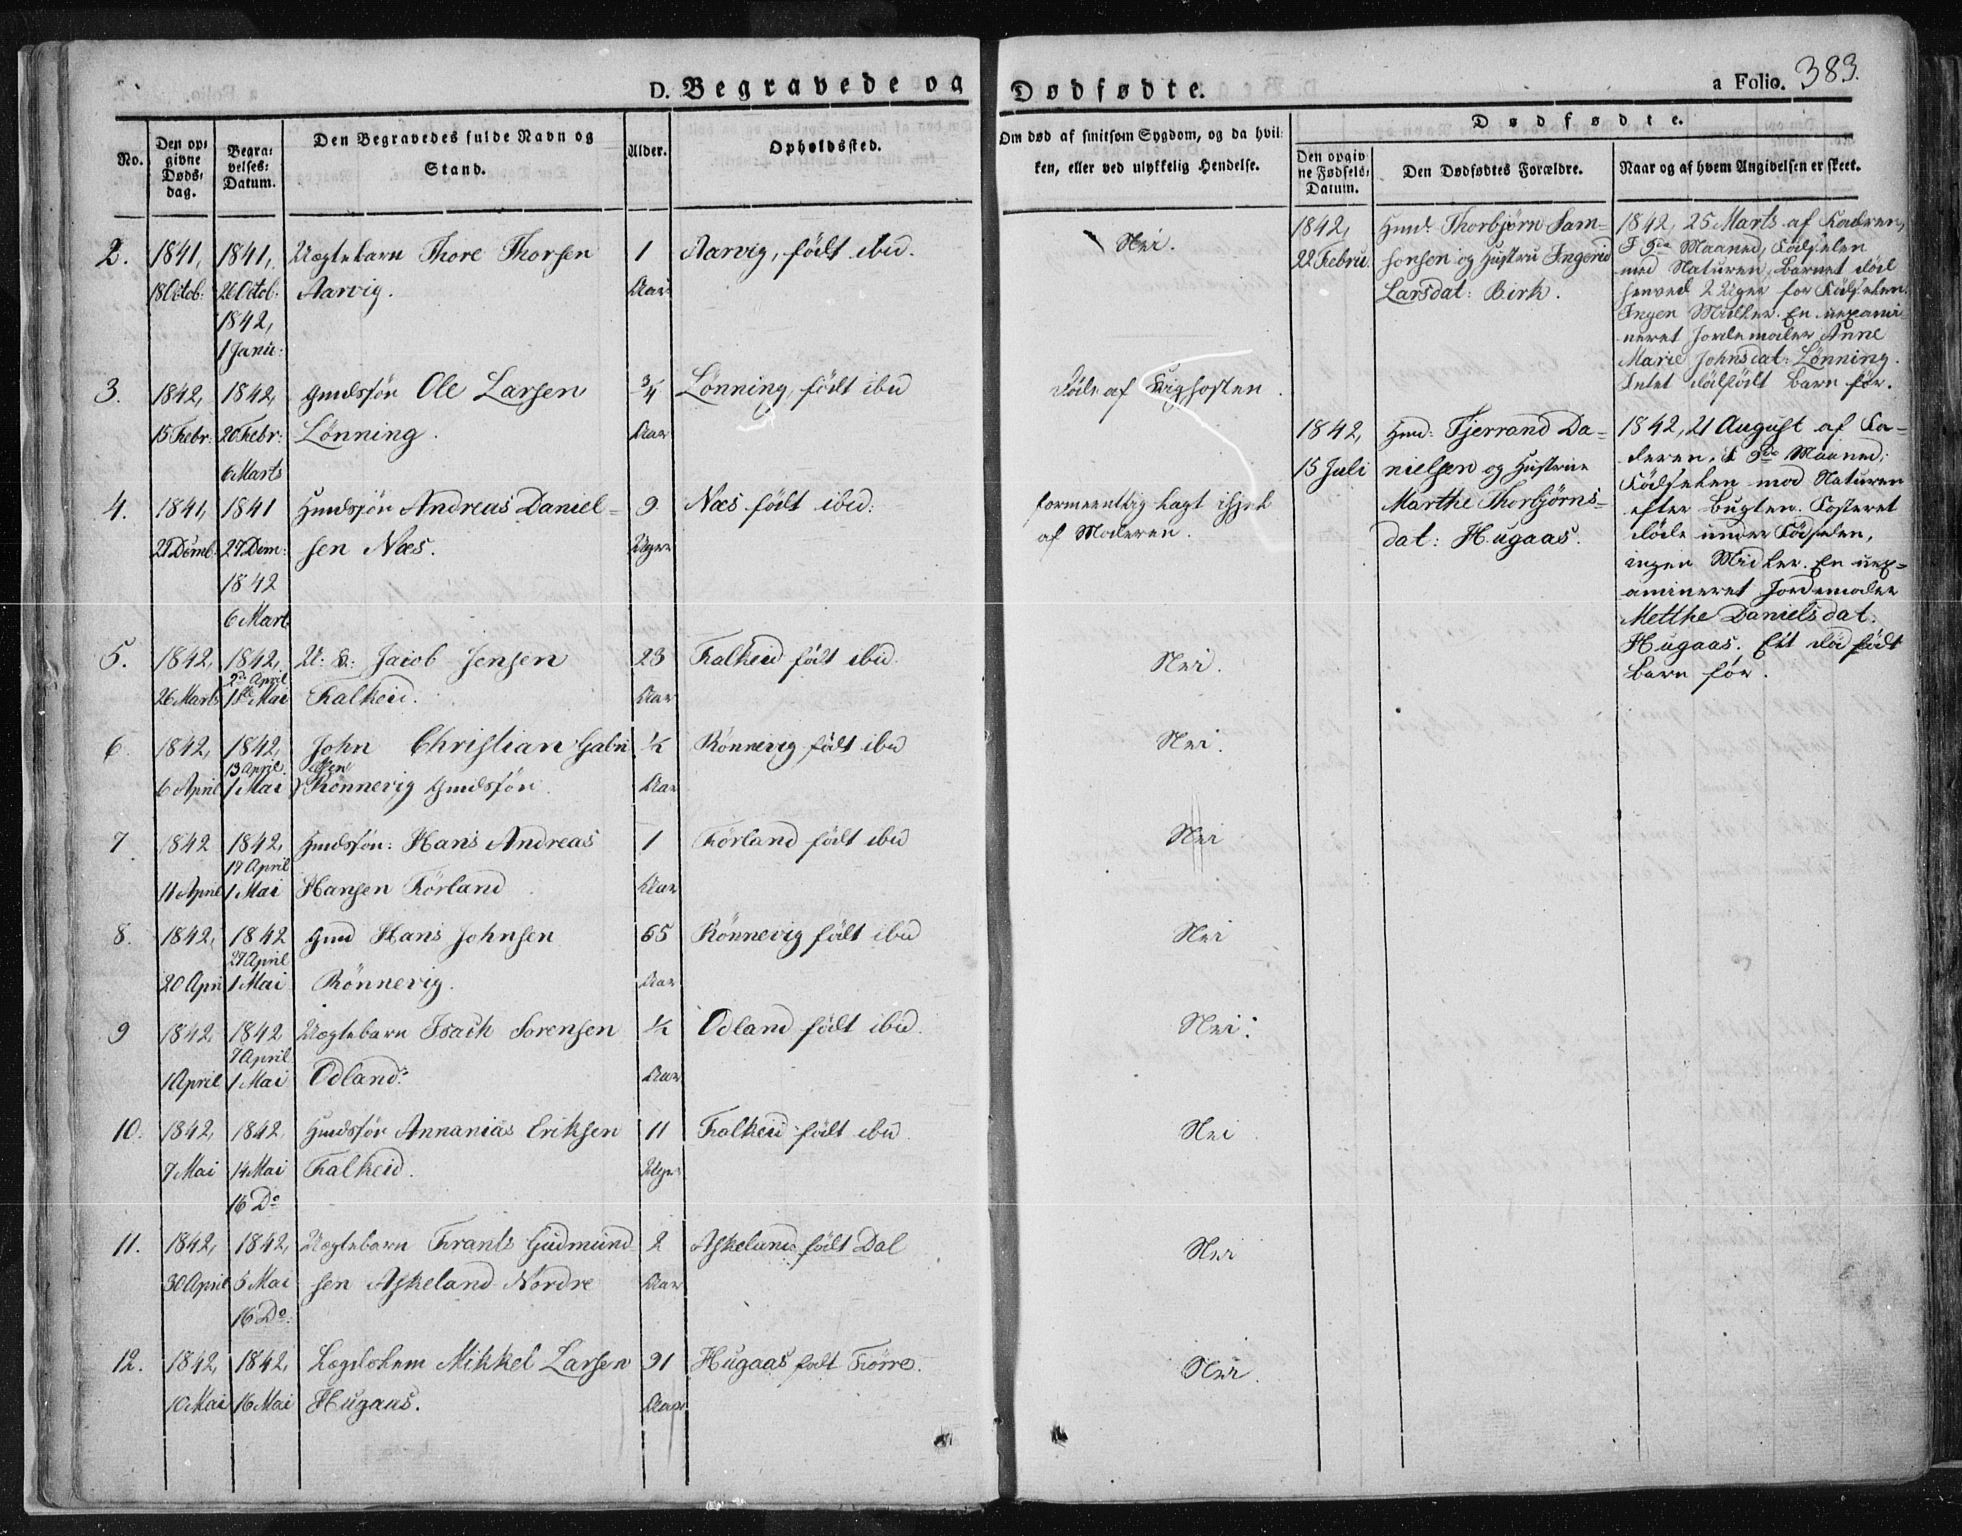 D. Begravede og Dødfødte. a Folio. 383.
No. Den opgivne Dødsdag. Begravelses-Datum. Den Begravedes fulde Navn og Stand. Alder. Opholdssted.
Om død af smitsom Sygdom, og da hvilken, eller ved ulykkelig Hendelse.
Dødfødte.
Den opgivne Fødsels-Datum. Den Dødfødtes Forældre. Naar og af hvem Angivelsen er skeet.
2. 1841, 1841, Uægtebarn Thore Thorsen 1 Aarvig, født ibid. Nei.
18 Octob: 26 Octob: Aarvig. Aar
1842,
1 Janu:
3. 1842, 1842, Gmdssøn Ole Larsen 3/4 Lønning, født ibid Døde af Kighosten.
15 Febr: 20 Febr: Lønning. Aar
6 Marts
4. 1841, 1841 Hmdssøn Andreas Daniel= 9 Næs født ibid: formeentlig lagt ihjel
27 Decmb: 27 Decm: sen Næs. Uger af Moderen.
1842
6 Mart
5. 1842, 1842, U: K: Jacob Jensen 23 Falkeid født ibid. Nei.
2den April
26 Marts 1ste Mai Falkeid. Aar
6 1842, 1842, John Christian Gabri 1/2 Rønnevig født ibid Nei.
13 April elsen
6 April 1 Mai Rønnevig Gmdssøn. Aar
7. 1842 1842, Hmdssøn: Hans Andreas 1 Førland født ibid Nei
17 April
11 April 1 Mai Hansen Førland Aar
8. 1842, 1842 Gmd Hans Johnsen 65 Rønnevig født ibid Nei
27 April
20 Apri 1 Mai Rønnevig. Aar
9 1842, 1842 Uægtebarn Isach Sørensen 1/2 Odland født ibid. Nei.
7 April
1 April 1 Mai Odland. Aar
10. 1842, 1842, Hmdssøn Annanias Eriksen 11 Falkeid født ibid. Nei
7 Mai 14 Mai Falkeid. Uger
16 Do
11. 1842, 1842, Uægtebarn Frants Gudmund 2 Askeland født Dal Nei
30 April 5 Mai sen Askeland Nordre Aar
16 Do:
12. 1842, 1842, Lægdslem Mikkel Larsen 91 Hugaas født Førre. Nei.
10 Mai 16 Mai Hugaas. Aar
1842, Hmd: Thorbjørn Sam=
22 Febru. sonsen og Hustru Ingerid
Larsdat: Birk.
1842, 25 Marts af Faderen,
I 9de Maaned, Fødselen
mod Naturen, Barnet død
henved 2 Uger før Fødselen.
Ingen Midler. En uexami
neret Jordemoder Anne
Marie Johnsdat: Lønning.
Intet dødfødt Barn før.
1842, Hmd: Tjerrand Da=
15 Juli nielsen og Hustrue
Marthe Thorbjørns=
dat: Hugaas.
1842, 21 August af Fa=
deren. I 9de Maaned;
Fødselen mod Naturen
efter Bugten. Fosteret
døde under Fødselen,
ingen Midler. En uex=
amineret Jordemoder
Metthe Danielsdat:
Hugaas. Eet død født
Barn før.